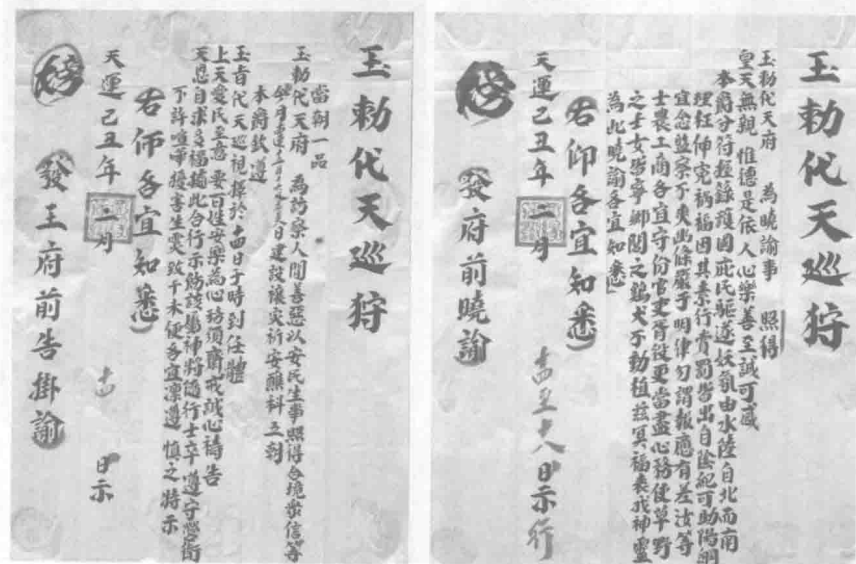 玉勅代天巡狩
玉勅代天府 為曉諭事 照得
皇天無親 惟德是依人心樂善至誠可感
本爵分符護國庇民驅逐妖氛由水陸自北而南
理枉伸冤禍福因其素行賞罰皆出自陰紀可助陽明
宜念監察不爽幽條嚴于明律勿謂報應有差汝等
士農工商各宜守份官吏胥役更當盡心務使草野
之士女皆寧鄉閭之鷄犬不動植茲冥福表我神靈
為此曉諭各宜知悉
右仰各宜知悉
天運己丑年二月 十四至十八日示行
榜 發府前曉諭
玉勅代天巡狩
當朝一品
玉勅代天府 為訪察人間善惡以安民生事照得合境衆信等
日建設禳災祈安醮科五朝
本爵欽遵
玉旨代天巡視擇於十四日子時到任體
上天愛民至意 要百姓安樂為心務須齋戒誠心禱告
天恩自求多福據此合行示諭該屬神將隨行士卒遵守營衛
不許喧嘩擾害生灵致干未便各宜凜遵 慎之特示
右仰各宜知悉
天運己丑年二月 十四 日示
榜 發王府前告掛諭